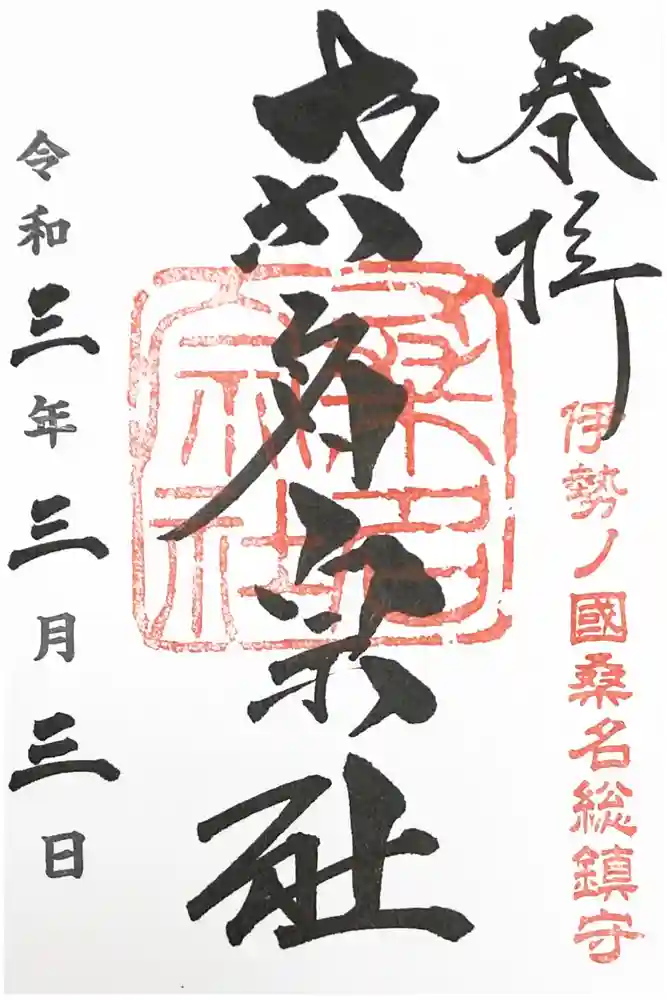 奉拝
伊勢ノ國桑名総鎮守
桑名宗社
桑名
宗社
令和三年三月三日